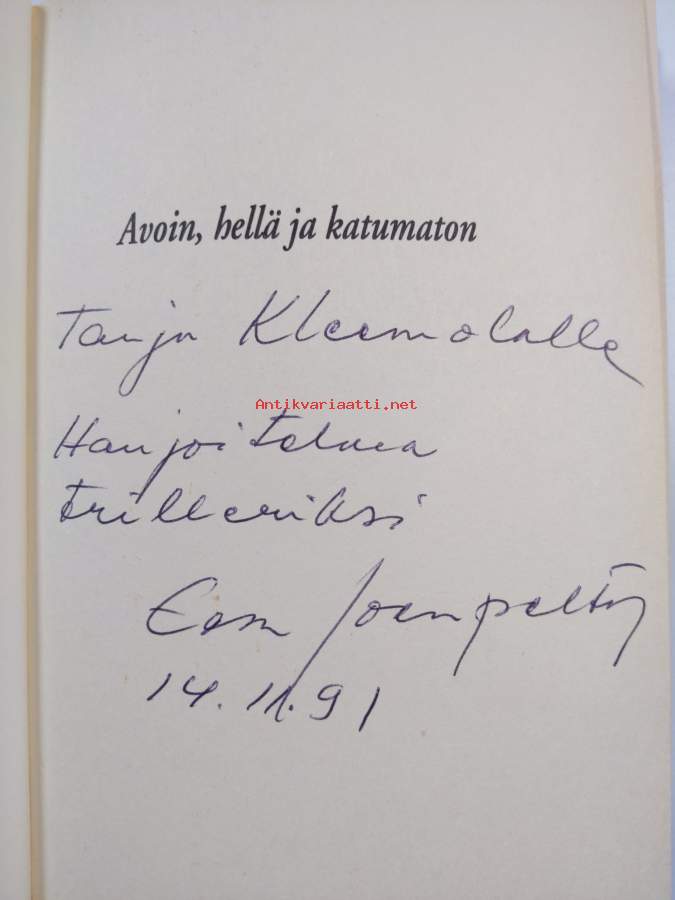 Avoin, hellä ja katumaton
Tarja Kleemolalle
Antikvariaatti.net
Harjoitelmia
trilleriksi
Eeva Joenpelto
14.11.91